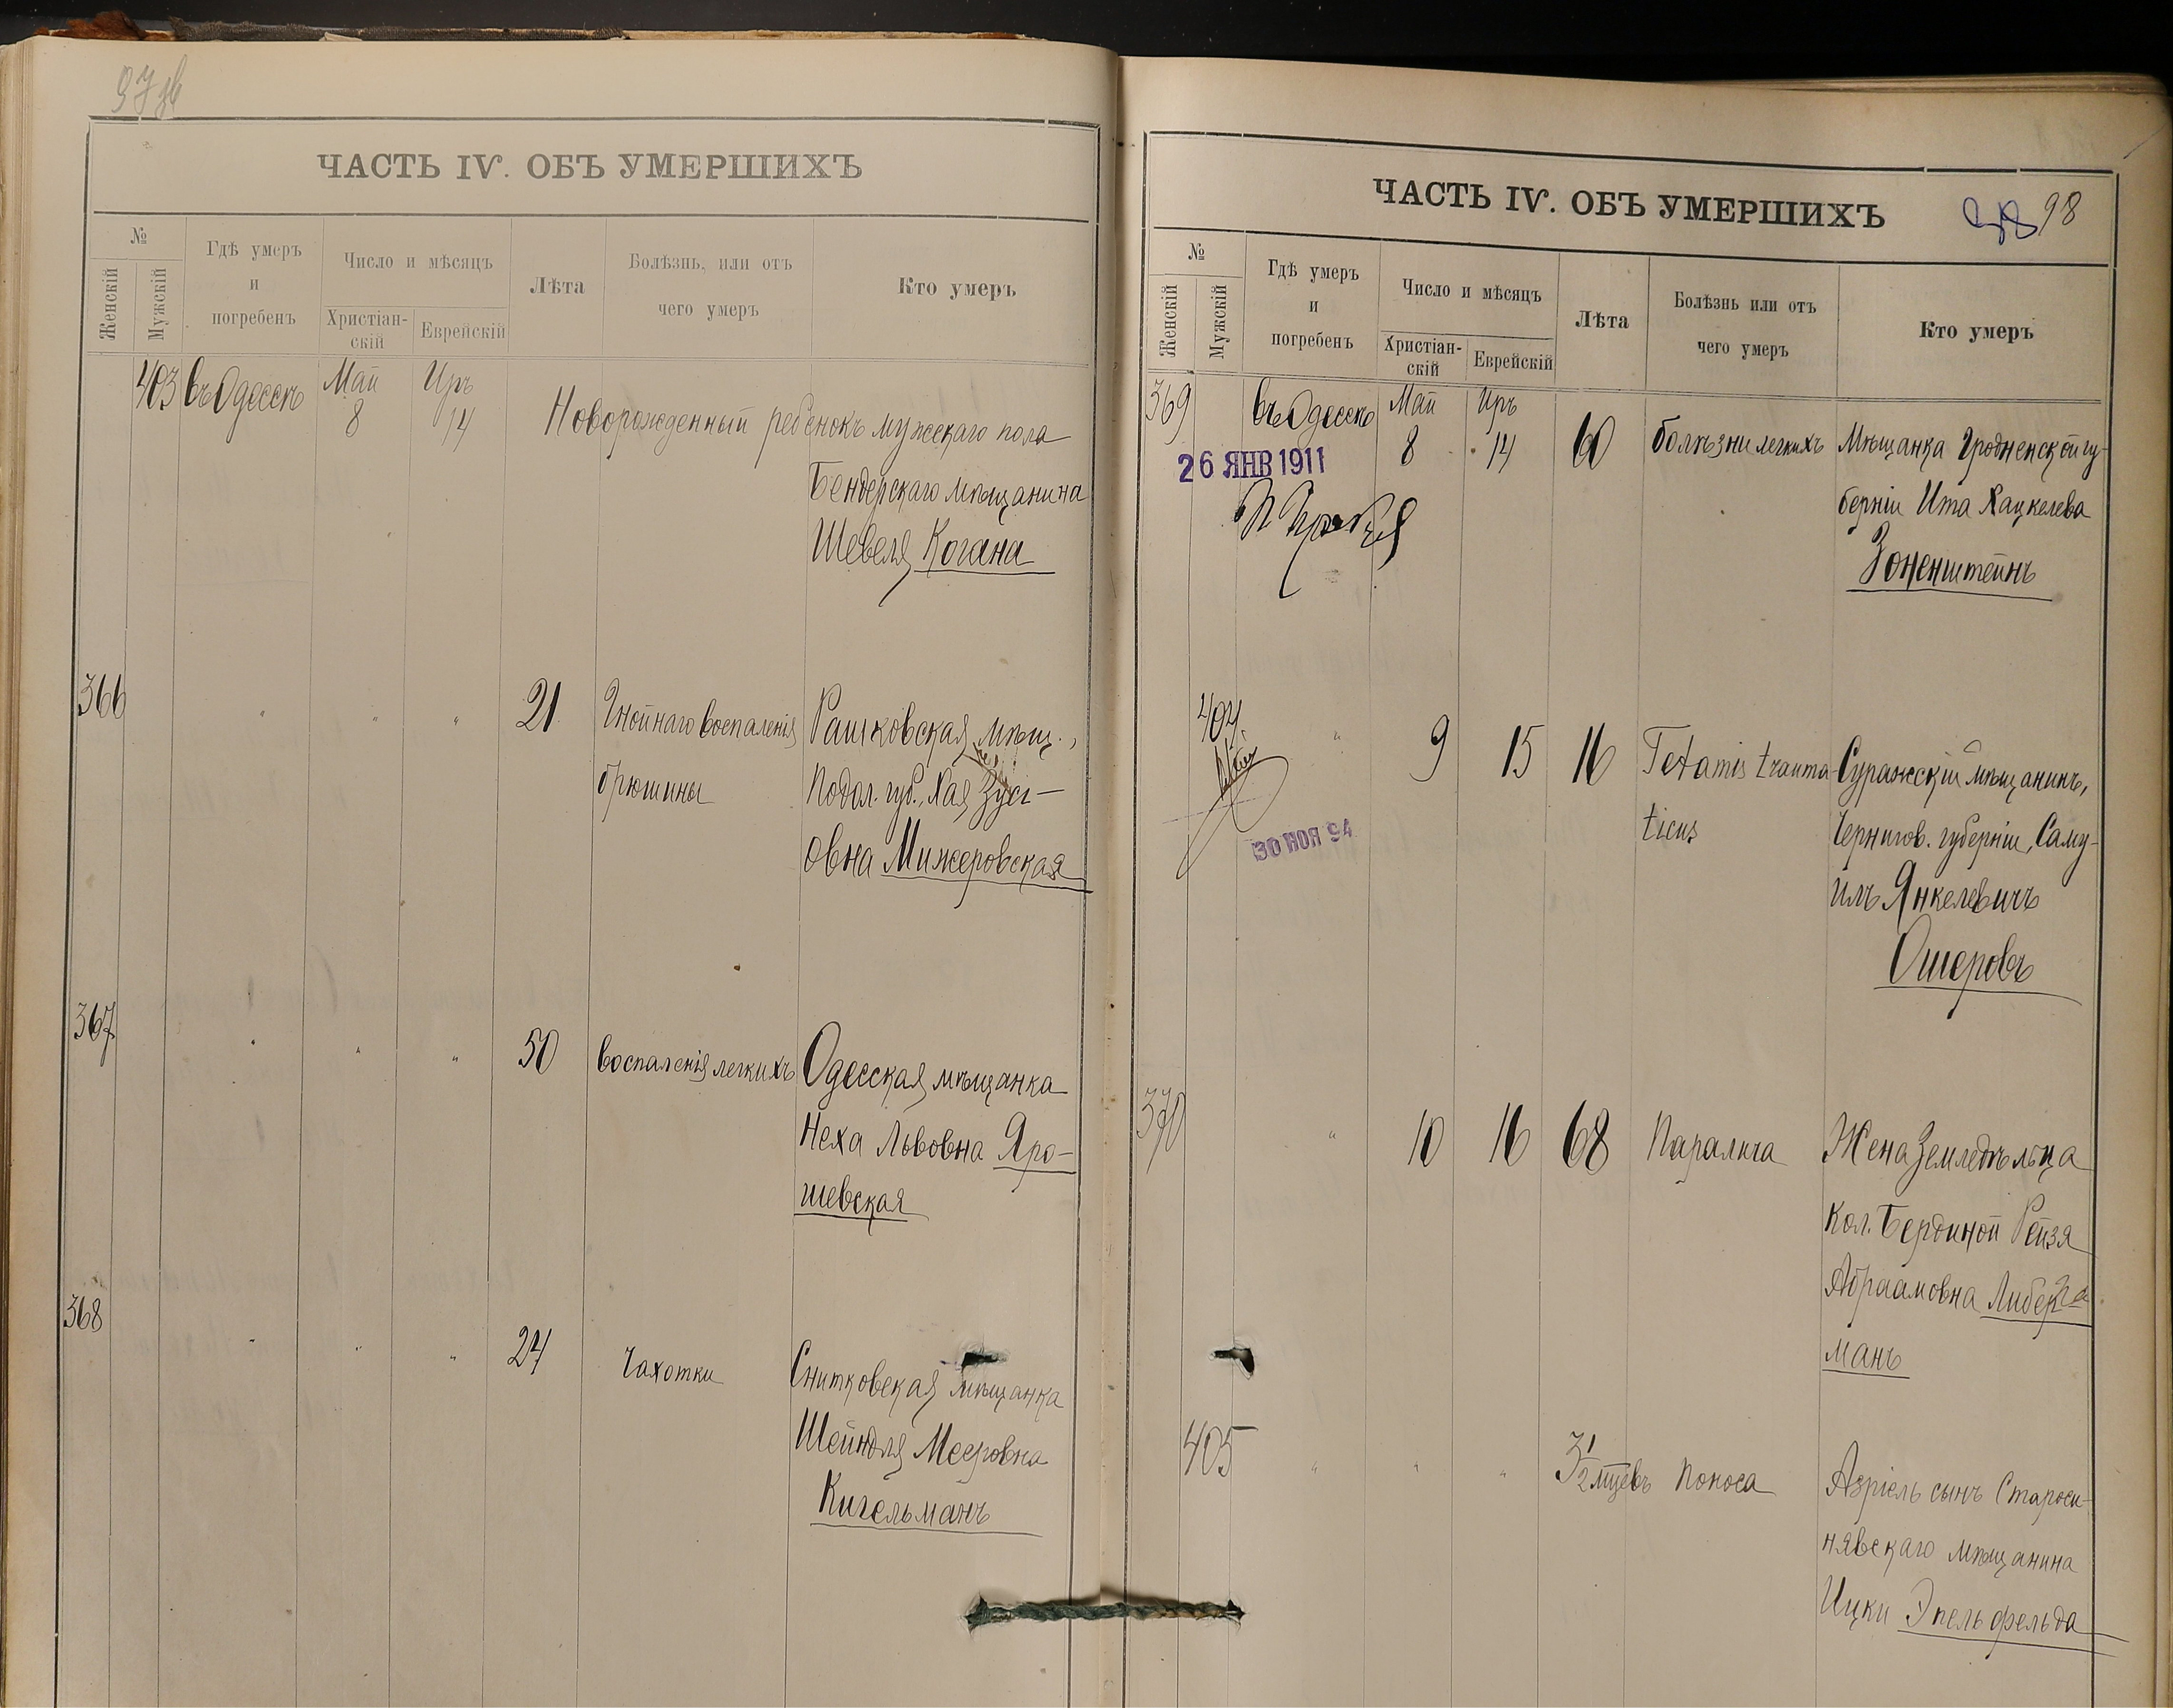 97 об
ЧАСТЬ IV. ОБЪ УМЕРШИХЪ
№
Женскій
Мужскій
Гдѣ умеръ
и
погребенъ
Число и мѣсяцъ
Христіан-
скій
Еврейскій
Лѣта
Болѣзнь, или отъ
чего умеръ
Кто умеръ
403 въ Одессѣ Май Иръ
8 14 Новорожденный ребенокъ мужскаго пола
Бендерскаго мѣщанина
Шевеля Когана
366 " " " 21 Гнойнаго воспаленія Рашковская мѣщ.,
брюшины Подол. губ., Хая Зусі-
овна Мижеровская
367 " " " 50 Воспаленія легкихъ Одесская мѣщанка
Неха Львовна Яро-
шевская
368 " " " 24 Чахотки Снитковская мѣщанка
Шейндля Мееровна
Кигельманъ
ЧАСТЬ IV. ОБЪ УМЕРШИХЪ
98
№
Женскій
Мужскій
Гдѣ умеръ
и
погребенъ
Число и мѣсяцъ
Христіан-
скій
Еврейскій
Лѣта
Болѣзнь или отъ
чего умеръ
Кто умеръ
369 въ Одессѣ Май Иръ
8 14 60 болѣзни легкихъ Мѣщанка Гродненской гу-
берніи Ита Хацкелева
Зоненштейнъ
26 ЯНВ 1911
404 " 9 15 16 Tetanus trauma- Суражскій мѣщанинъ,
ticus Чернигов. губерніи, Саму-
илъ Янкелевичъ
Ошеровъ
30 НОЯ 94
370 " 10 16 68 Паралича Жена Земледѣльца
Кол. Бердиной Рейзя
Абраамовна Либер-
манъ
405 " " " 3 1/2 мцевъ Поноса Азріель сынъ Староси-
нявскаго мѣщанина
Ицки Эпельфельда